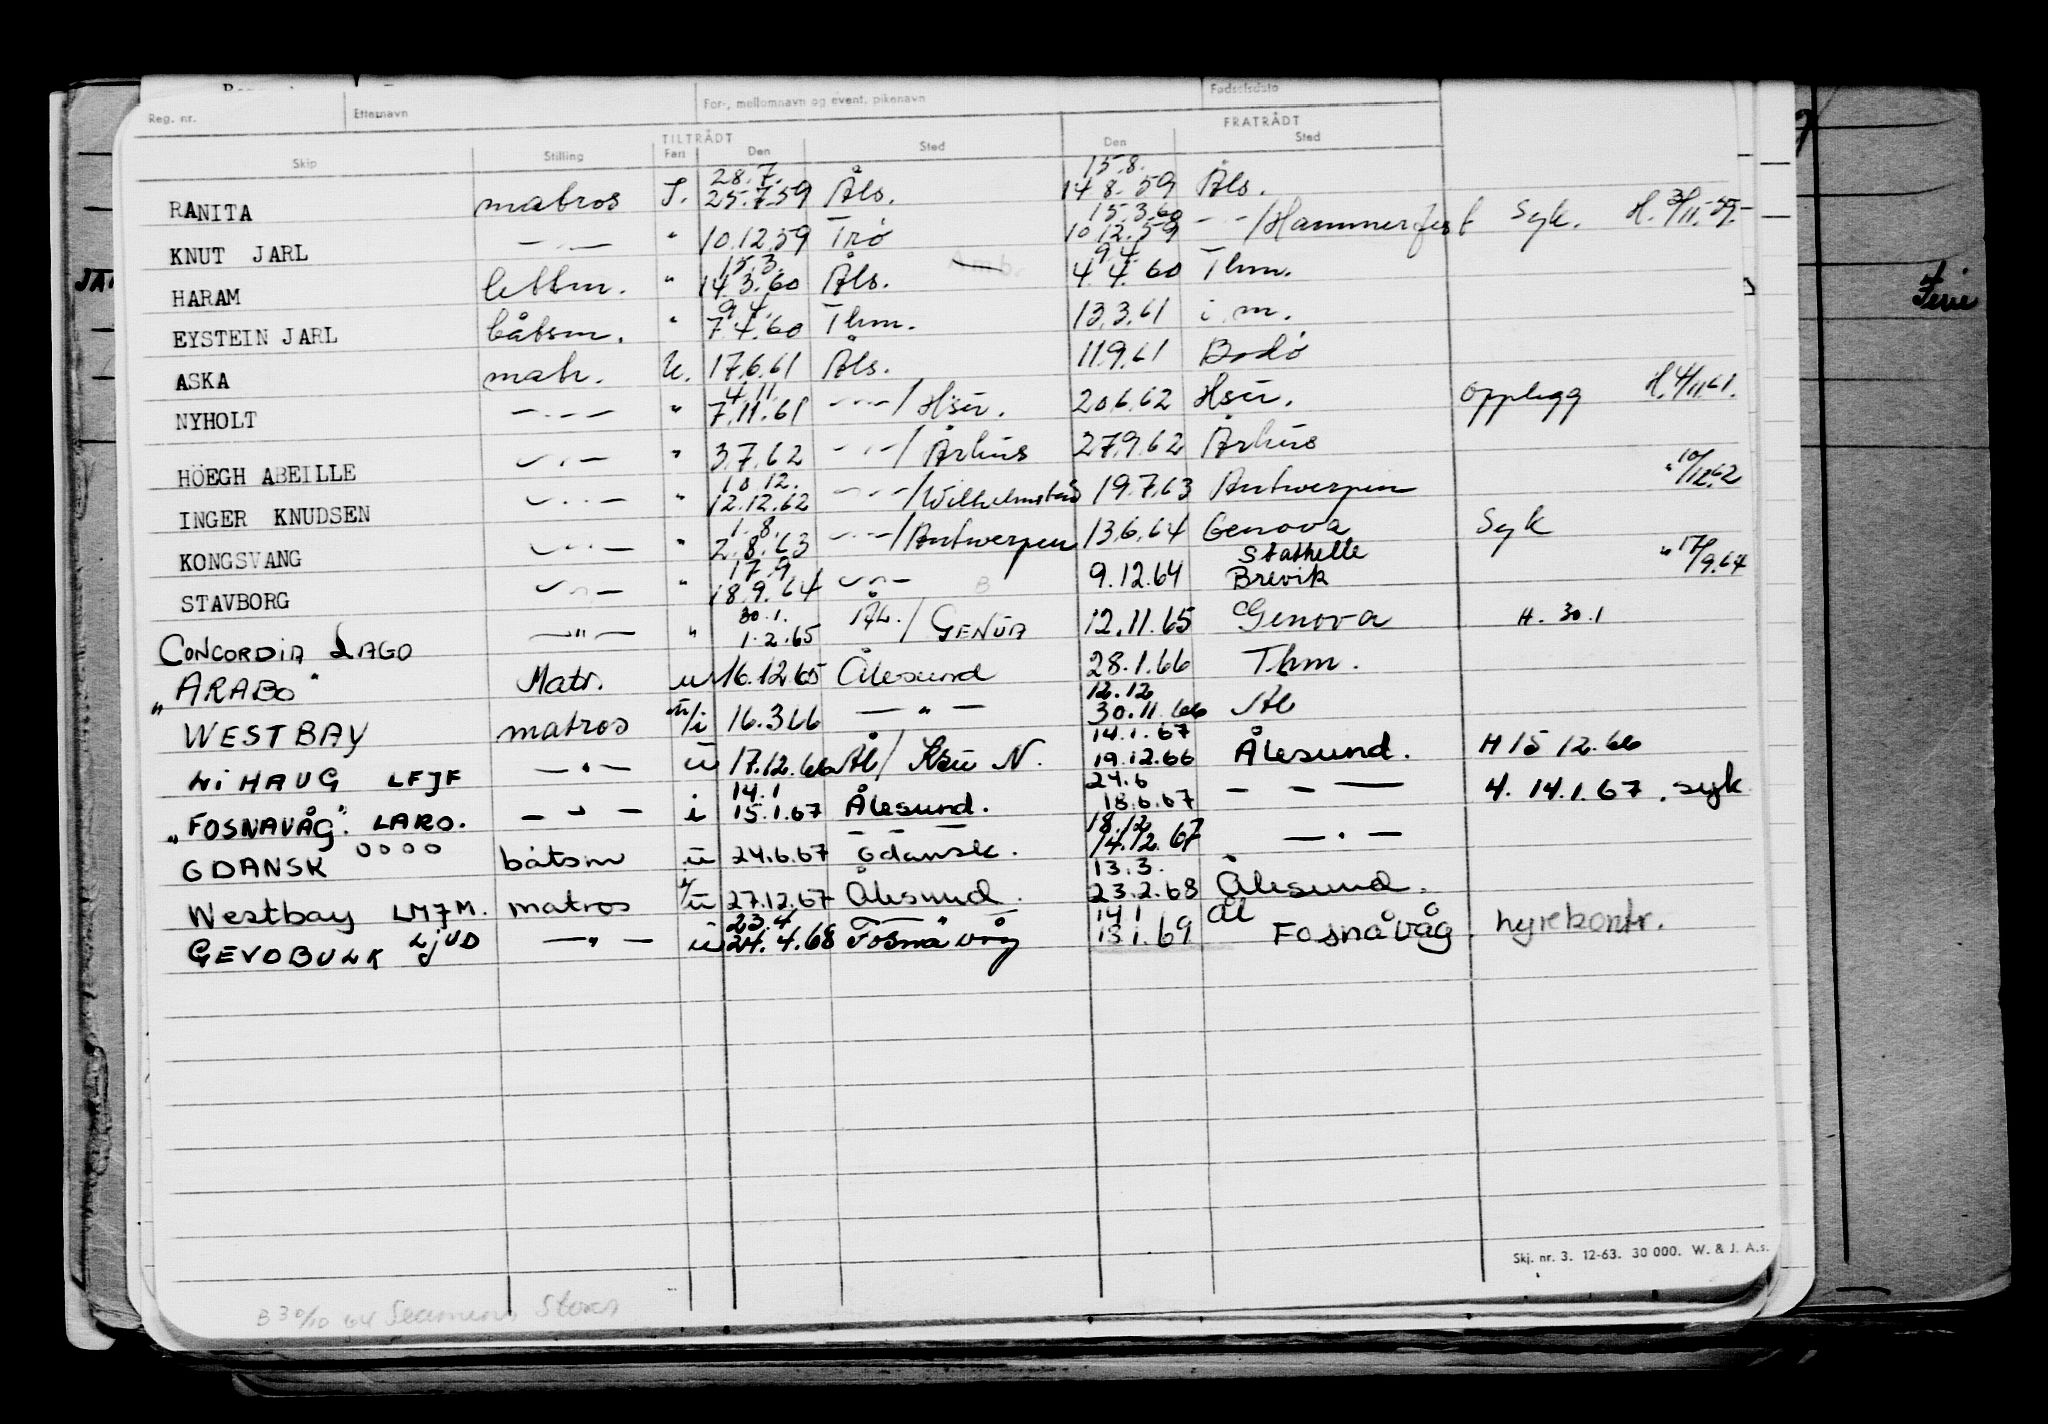 Reg. nr. Etternavn For-, mellomnavn og event. pikenavn Fødselsdato
TILTRÅDT FRATRÅDT
Skip Stilling Fart Den Sted Den Sted
28.7. 15.8.
RANITA matros I. 25.7.59 Åls. 14.8.59 Åls.
15.3.60
KNUT JARL — " — " 10.12.59 Trø 10.12.59 — " — /Hammerfest Syk. H. 3/11.59.
15.3. 9.4.
HARAM lettm. " 14.3.60 Åls. 4.4.60 Thm.
9.4.
EYSTEIN JARL båtsm. " 7.4.60 Thm. 13.3.61 i.m.
ASKA matr. U. 17.6.61 Åls. 11.9.61 Bodø
4.11.
NYHOLT — " — " 7.11.61 — " — / Hsū. 20.6.62 Hsū. Opplegg H. 4/11.61.
HÖEGH ABEILLE — " — " 3.7.62 — " — / Århus 27.9.62 Århus
10.12.
INGER KNUDSEN — " — " 12.12.62 — " — /Wilhelmstad 19.7.63 Antwerpen " 10/12.62
1.8.
KONGSVANG — " — " 2.8.63 — " — /Antwerpen 13.6.64 Genova Syk
17.9 Stathelle
STAVBORG — " — " 18.9.64 — " — B 9.12.64 Brevik " 17/9.64
30.1.
CONCORDIA LAGO — " — " 1.2.65 ÅL. / GENUA 12.11.65 Genova H. 30.1
" ARABO " Matr. u 16.12.65 Ålesund 28.1.66 Thm.
12.12
WESTBAY matros u/i 16.3.66 — " — 30.11.66 Ål
14.1.67
LIHAUG LFJF — " — u 17.12.66 Ål/ Ksu N. 19.12.66 Ålesund. H 15 12.66
14.1 24.6
"FOSNAVÅG". LARO. — " — i 15.1.67 Ålesund. 18.6.67 — — — H. 14.1.67. syk
18.12
GDANSK OOOO båtsm u 24.6.67 Gdansk. 14.12.67 — " —
13.3.
Westbay LMJM. matros u 27.12.67 Ålesund. 23.2.68 Ålesund.
23.4 14.1 ål
GEVOBULK LJUD — " — u 24.4.68 Fosnavåg 13.1.69 Fosnåvåg. hyrekontr.
Ferie
Skj. nr. 3. 12-63. 30 000. W. & J. A.s.
B 30/10 64 Seamens Stores